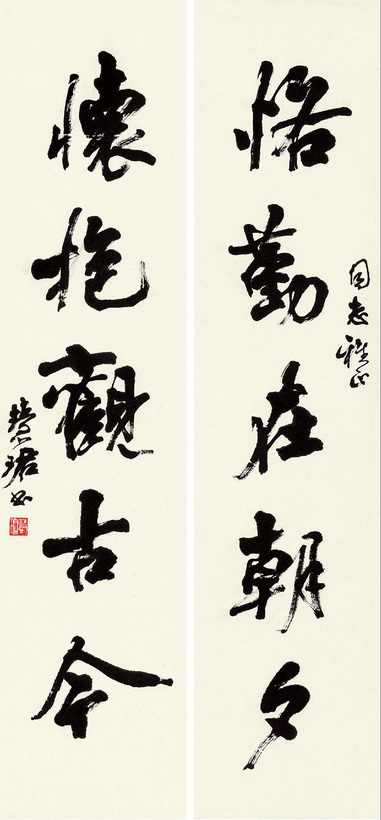 恪勤在朝夕
同志雅正
懷抱觀古今
慧珺书